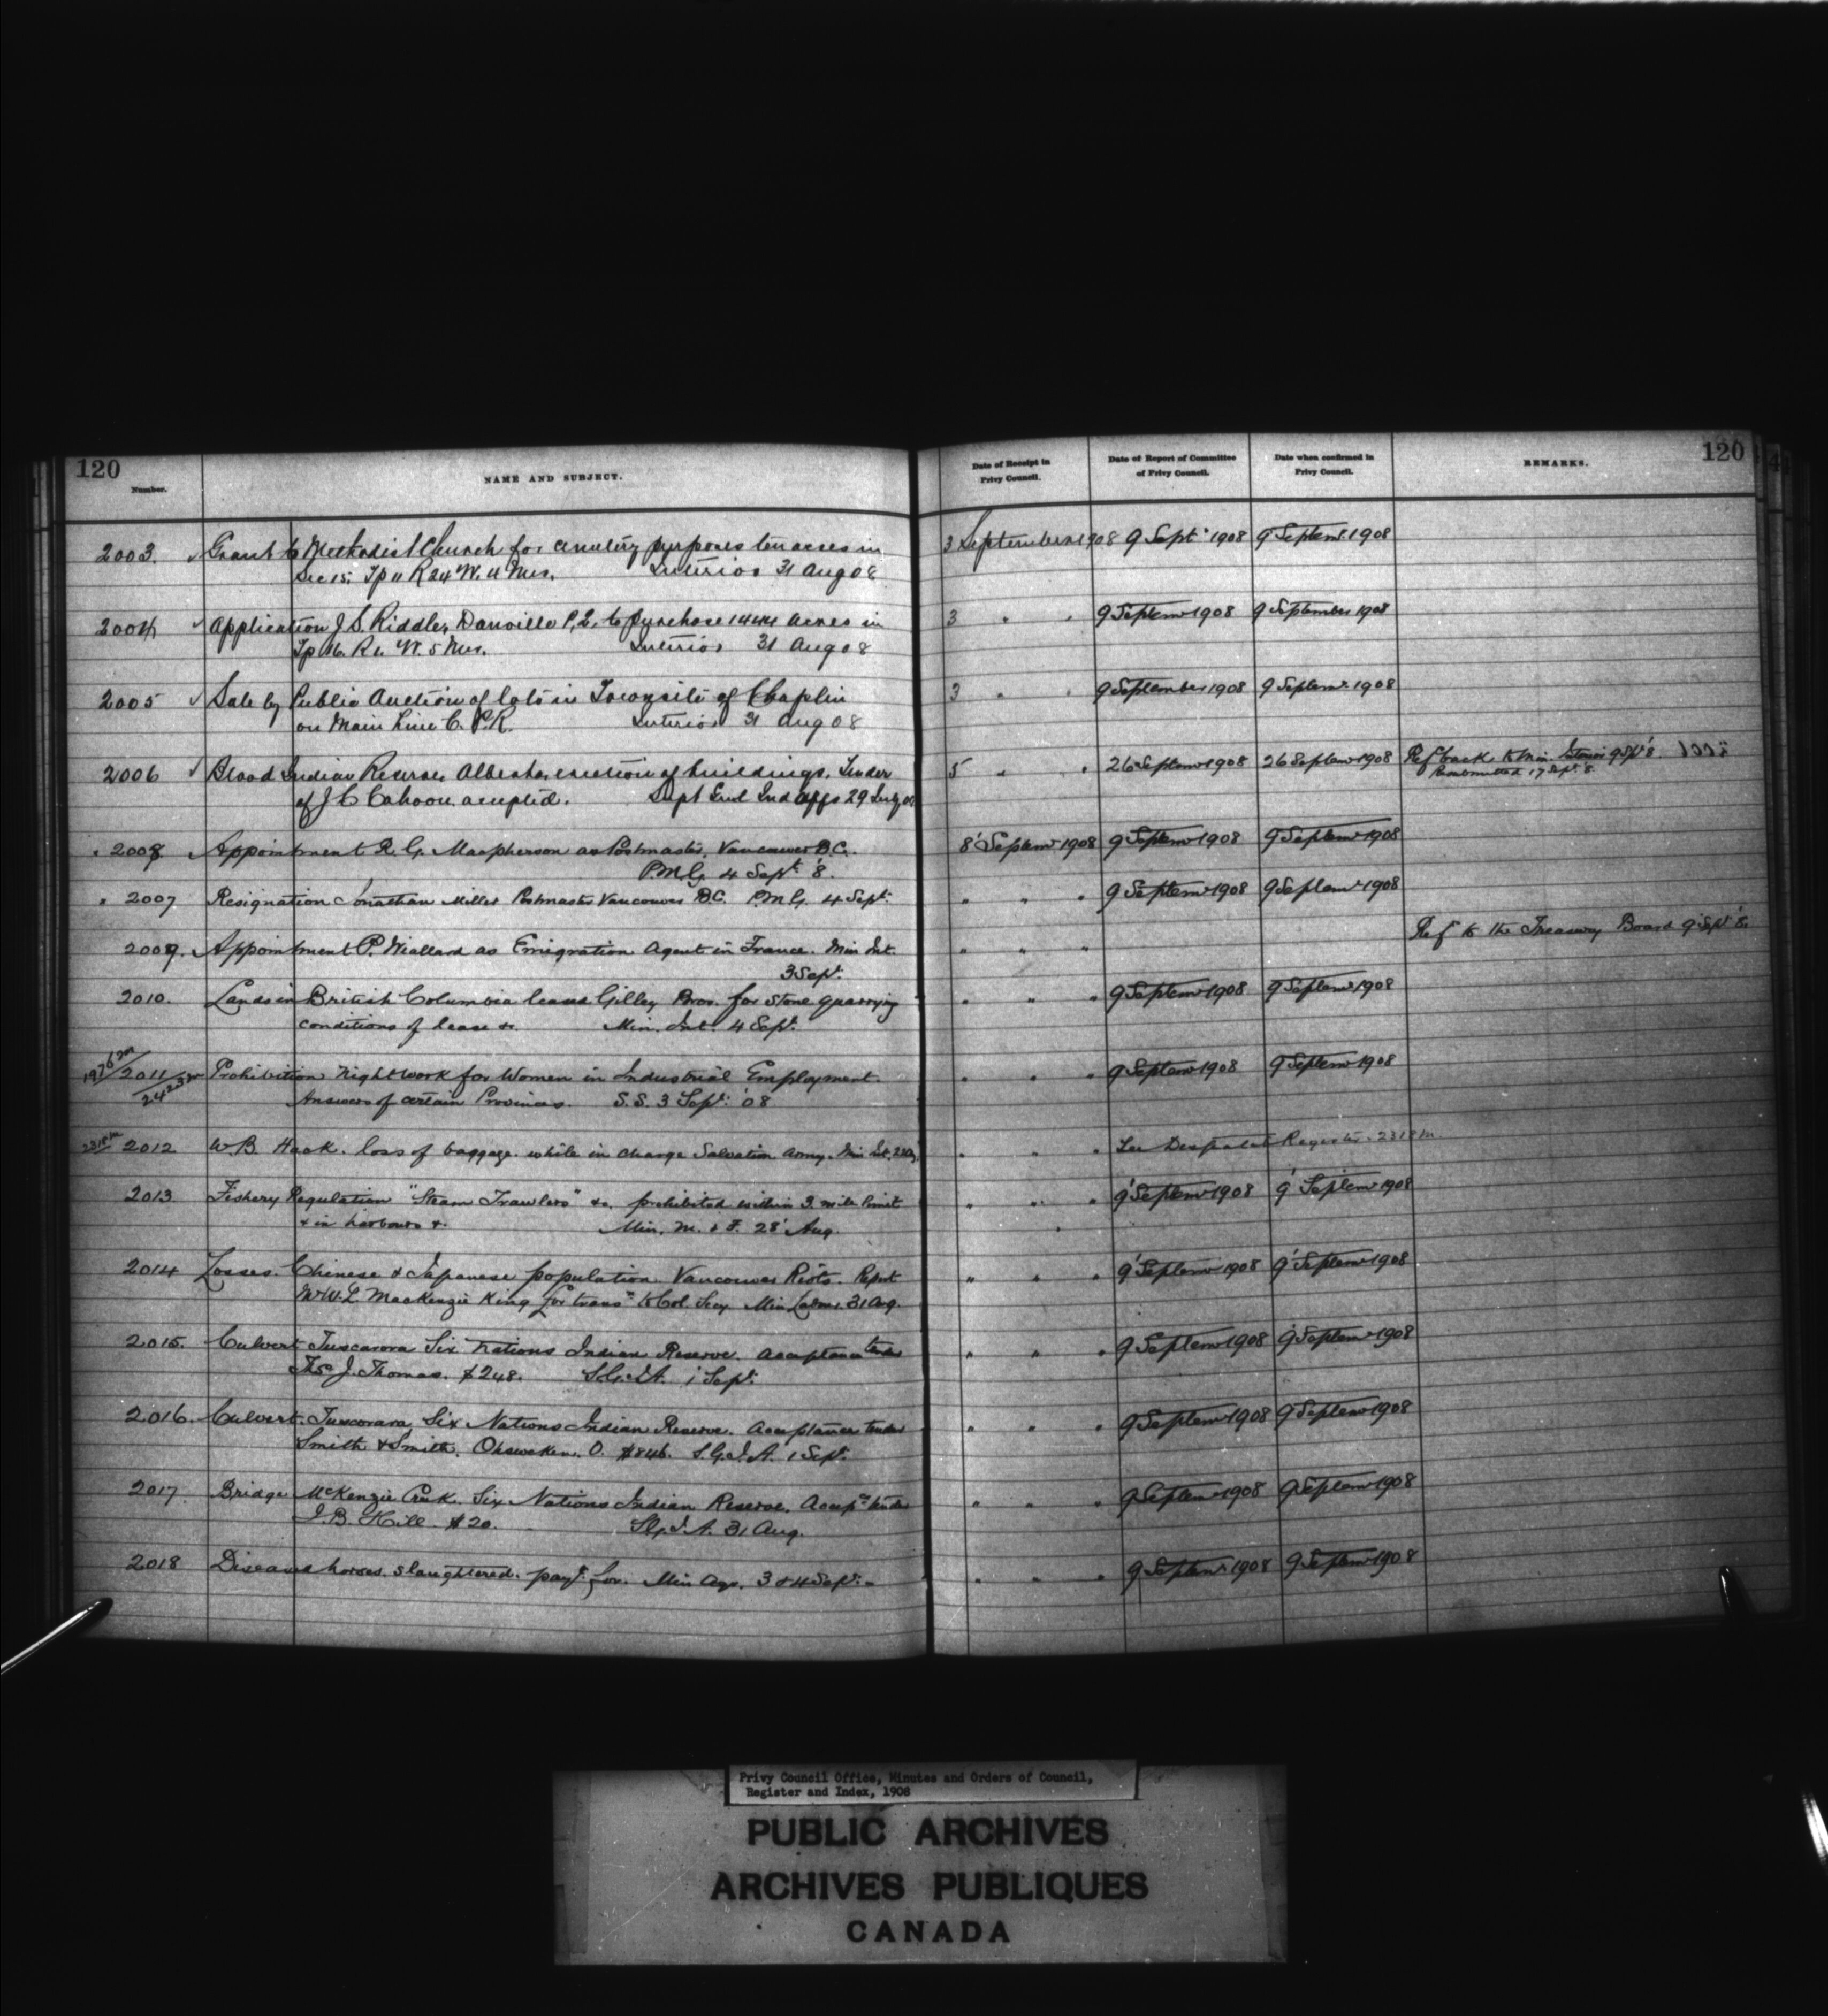 120
Number.
NAME AND SUBJECT.
Date of Receipt in Privy Council.
Date of Report of Committee of Privy Council.
Date when confirmed in Privy Council.
REMARKS.
120
2003. Grant to Methodist Church for cemetery purposes ten acres in 3 September 1908 9 Sept 1908 9 Septemr 1908
Sec 15. Tp 11 R 24 W. 4 Mer. Interior 31 Aug 08
2004 Application J. S. Riddle, Danville P.Q. to purchase 1444 acres in 3 " " 9 Septemr 1908 9 September 1908
Tp 16. R 1. W. 5 Mer. Interior 31 Aug 08
2005 Sale by Public Auction of lots in Townsite of Chaplin 3 " " 9 September 1908 9 Septemr 1908
on Main Line C. P. R. Interior 31 Aug 08
2006 Blood Indian Reserve Alberta, erection of buildings. Tender 5 " " 26 Septemr 1908 26 Septemr 1908 Ref back to Min Interior 9 Sept '8
of J C Cahoon accepted. Supt Genl Ind Affs 29 Resubmitted 17 Sept. 8
2008 Appointment R. G. Macpherson as Postmaster, Vancouver B.C. 8' Septemr 1908 9 Septemr 1908 9 Septemr 1908
P.M.G. 4 Sept '8.
2007 Resignation Jonathan Miller Postmaster Vancouver B.C. P.M.G. 4 Sept. " " " 9 Septemr 1908 9 Septemr 1908
2009. Appointment P. Wiallard as Emigration Agent in France. Min Int. " " " Ref to the Treasury Board 9 Sept '8.
3 Sept.
2010. Lands in British Columbia leased Gilley Bros. for stone quarrying " " " 9 Septemr 1908 9 Septemr 1908
conditions of lease &c. Min. Int. 4 Sept.
1976 m
2011 Prohibition Night work for Women in Industrial Employment. " " " 9 Septemr 1908 9 Septemr 1908
2423 m
Answers of certain Provinces. S.S. 3 Sept. '08
2318 m 2012 W. B. Hack. loss of baggage while in charge Salvation Army. Min Int. " " " See Despatch Register 2318 m
2013 Fishery Regulation "Steam Trawlers" &c. prohibited within 3 mile limit " " " 9' Septemr 1908 9' Septemr 1908
& in harbours &. Min. M. & F. 28' Aug.
2014 Losses. Chinese & Japanese population Vancouver Riots. Report " " " 9' Septemr 1908 9' Septemr 1908
Mr W. L. MacKenzie King for trans'n to Col. Secy Min Labour 31 Aug.
2015. Culvert Tuscarora Six Nations Indian Reserve. Acceptance tender " " " 9 Septemr 1908 9 Septemr 1908
Thos J. Thomas. $248. S.G.I.A. 1 Sept.
2016. Culvert. Tuscarora, Six Nations Indian Reserve. Acceptance tender " " " 9 Septemr 1908 9 Septemr 1908
Smith & Smith, Ohsweken. O. $846. S.G.I.A. 1 Sept.
2017 Bridge McKenzie Creek. Six Nations Indian Reserve. Accep'ce tender " " " 9 Septemr 1908 9 Septemr 1908
J. B. Hill. $20. S.G.I.A. 31 Aug.
2018 Diseased horses. slaughtered. pay't for. Min Agr. 3 & 4 Sept. " " " 9 Septemr 1908 9 Septemr 1908
Privy Council Office, Minutes and Orders of Council,
Register and Index, 1908
PUBLIC ARCHIVES
ARCHIVES PUBLIQUES
CANADA